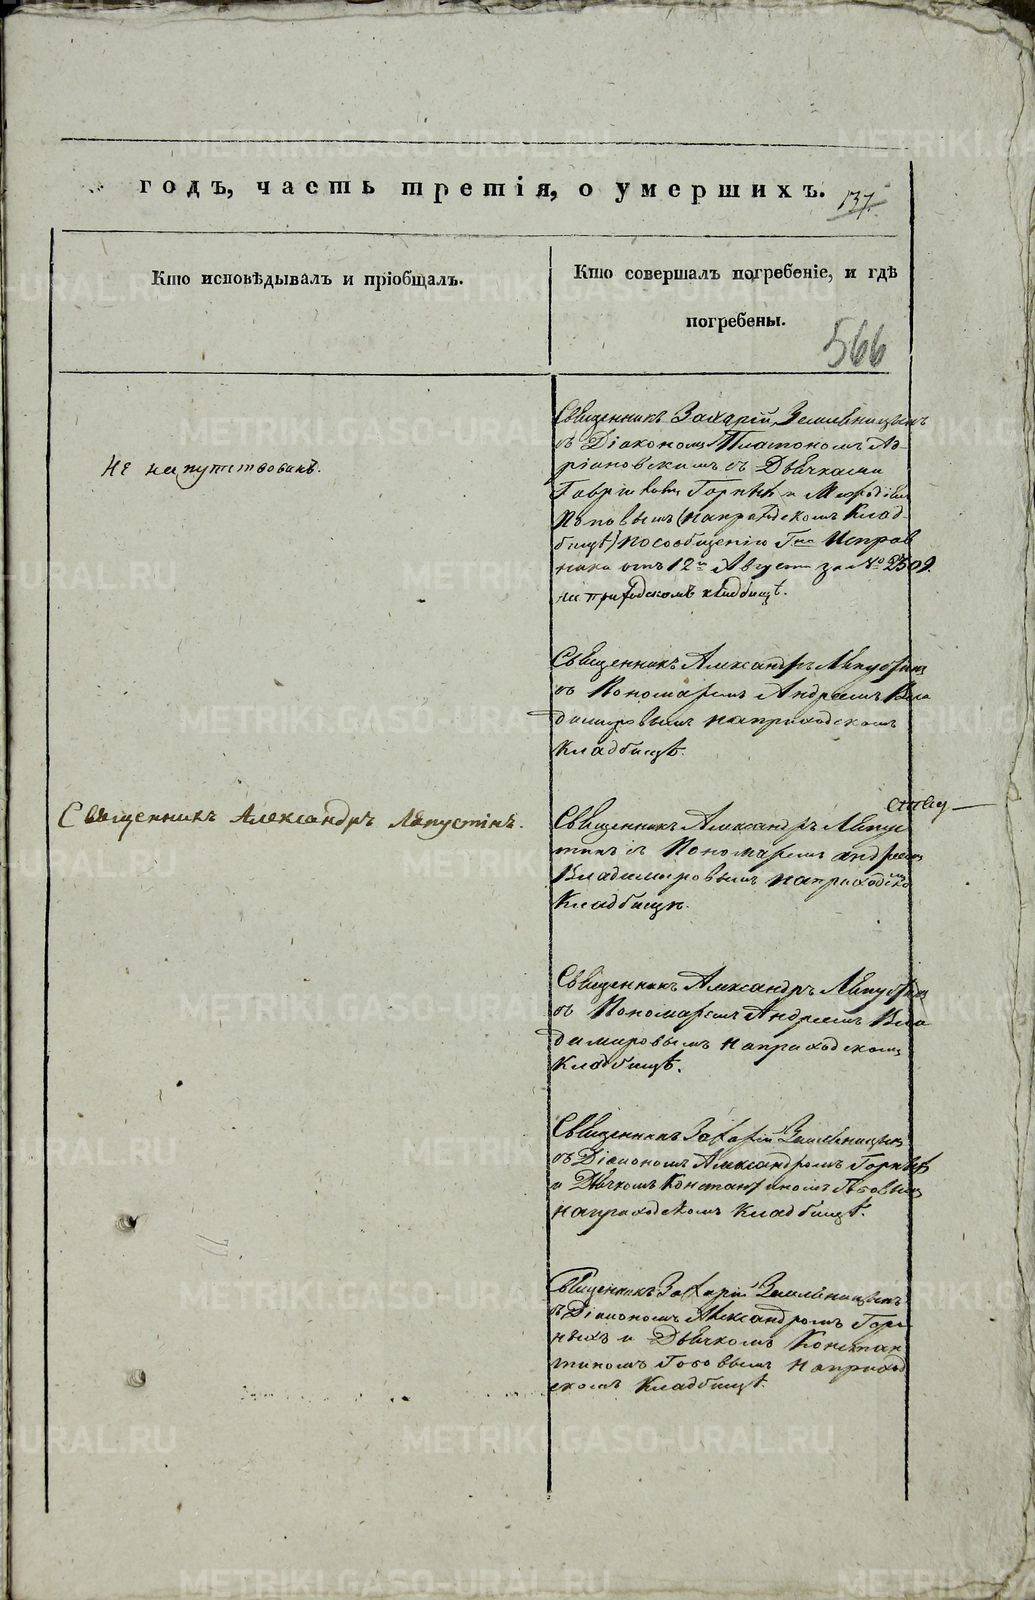 годъ, часть третія, о умершихъ.
137.
Кто исповѣдывалъ и пріобщалъ.
Кто совершалъ погребеніе, и гдѣ
погребены.
566
Священникъ Захарій Землѣницынъ
съ Діакономъ Платономъ Ад-
ріановскимъ съ Дьячками
Горныхъ и
Поповымъ (на приходскомъ Клад-
бищѣ) по сообщенію Гна Исправ
ника отъ 12го Августа за № 2509.
на приходскомъ кладбищѣ.
Не напутствованъ.
Священникъ Александръ Ляпустинъ
съ Пономаремъ Андреемъ Вла
димировымъ на приходскомъ
Кладбищѣ.
Священникъ Александръ Ляпустинъ.
Священникъ Александръ Ляпус
тинъ съ Пономаремъ Андреемъ
Владимировымъ на приходском
Кладбищѣ.
Священникъ Александръ Ляпустинъ
съ Пономаремъ Андреемъ Вла
димировымъ на приходскомъ
Кладбищѣ.
Священникъ Захарій Землѣницынъ
съ Діакономъ Александромъ Горныхъ
и Дьячкомъ Константиномъ
на приходскомъ Кладбищѣ.
Священникъ Захарій Землѣницынъ
съ Діакономъ Александромъ Гор
ныхъ и Дьячкомъ Констан
тиномъ на приход
скомъ Кладбищѣ.
METRIKI.GASO-URAL.RU